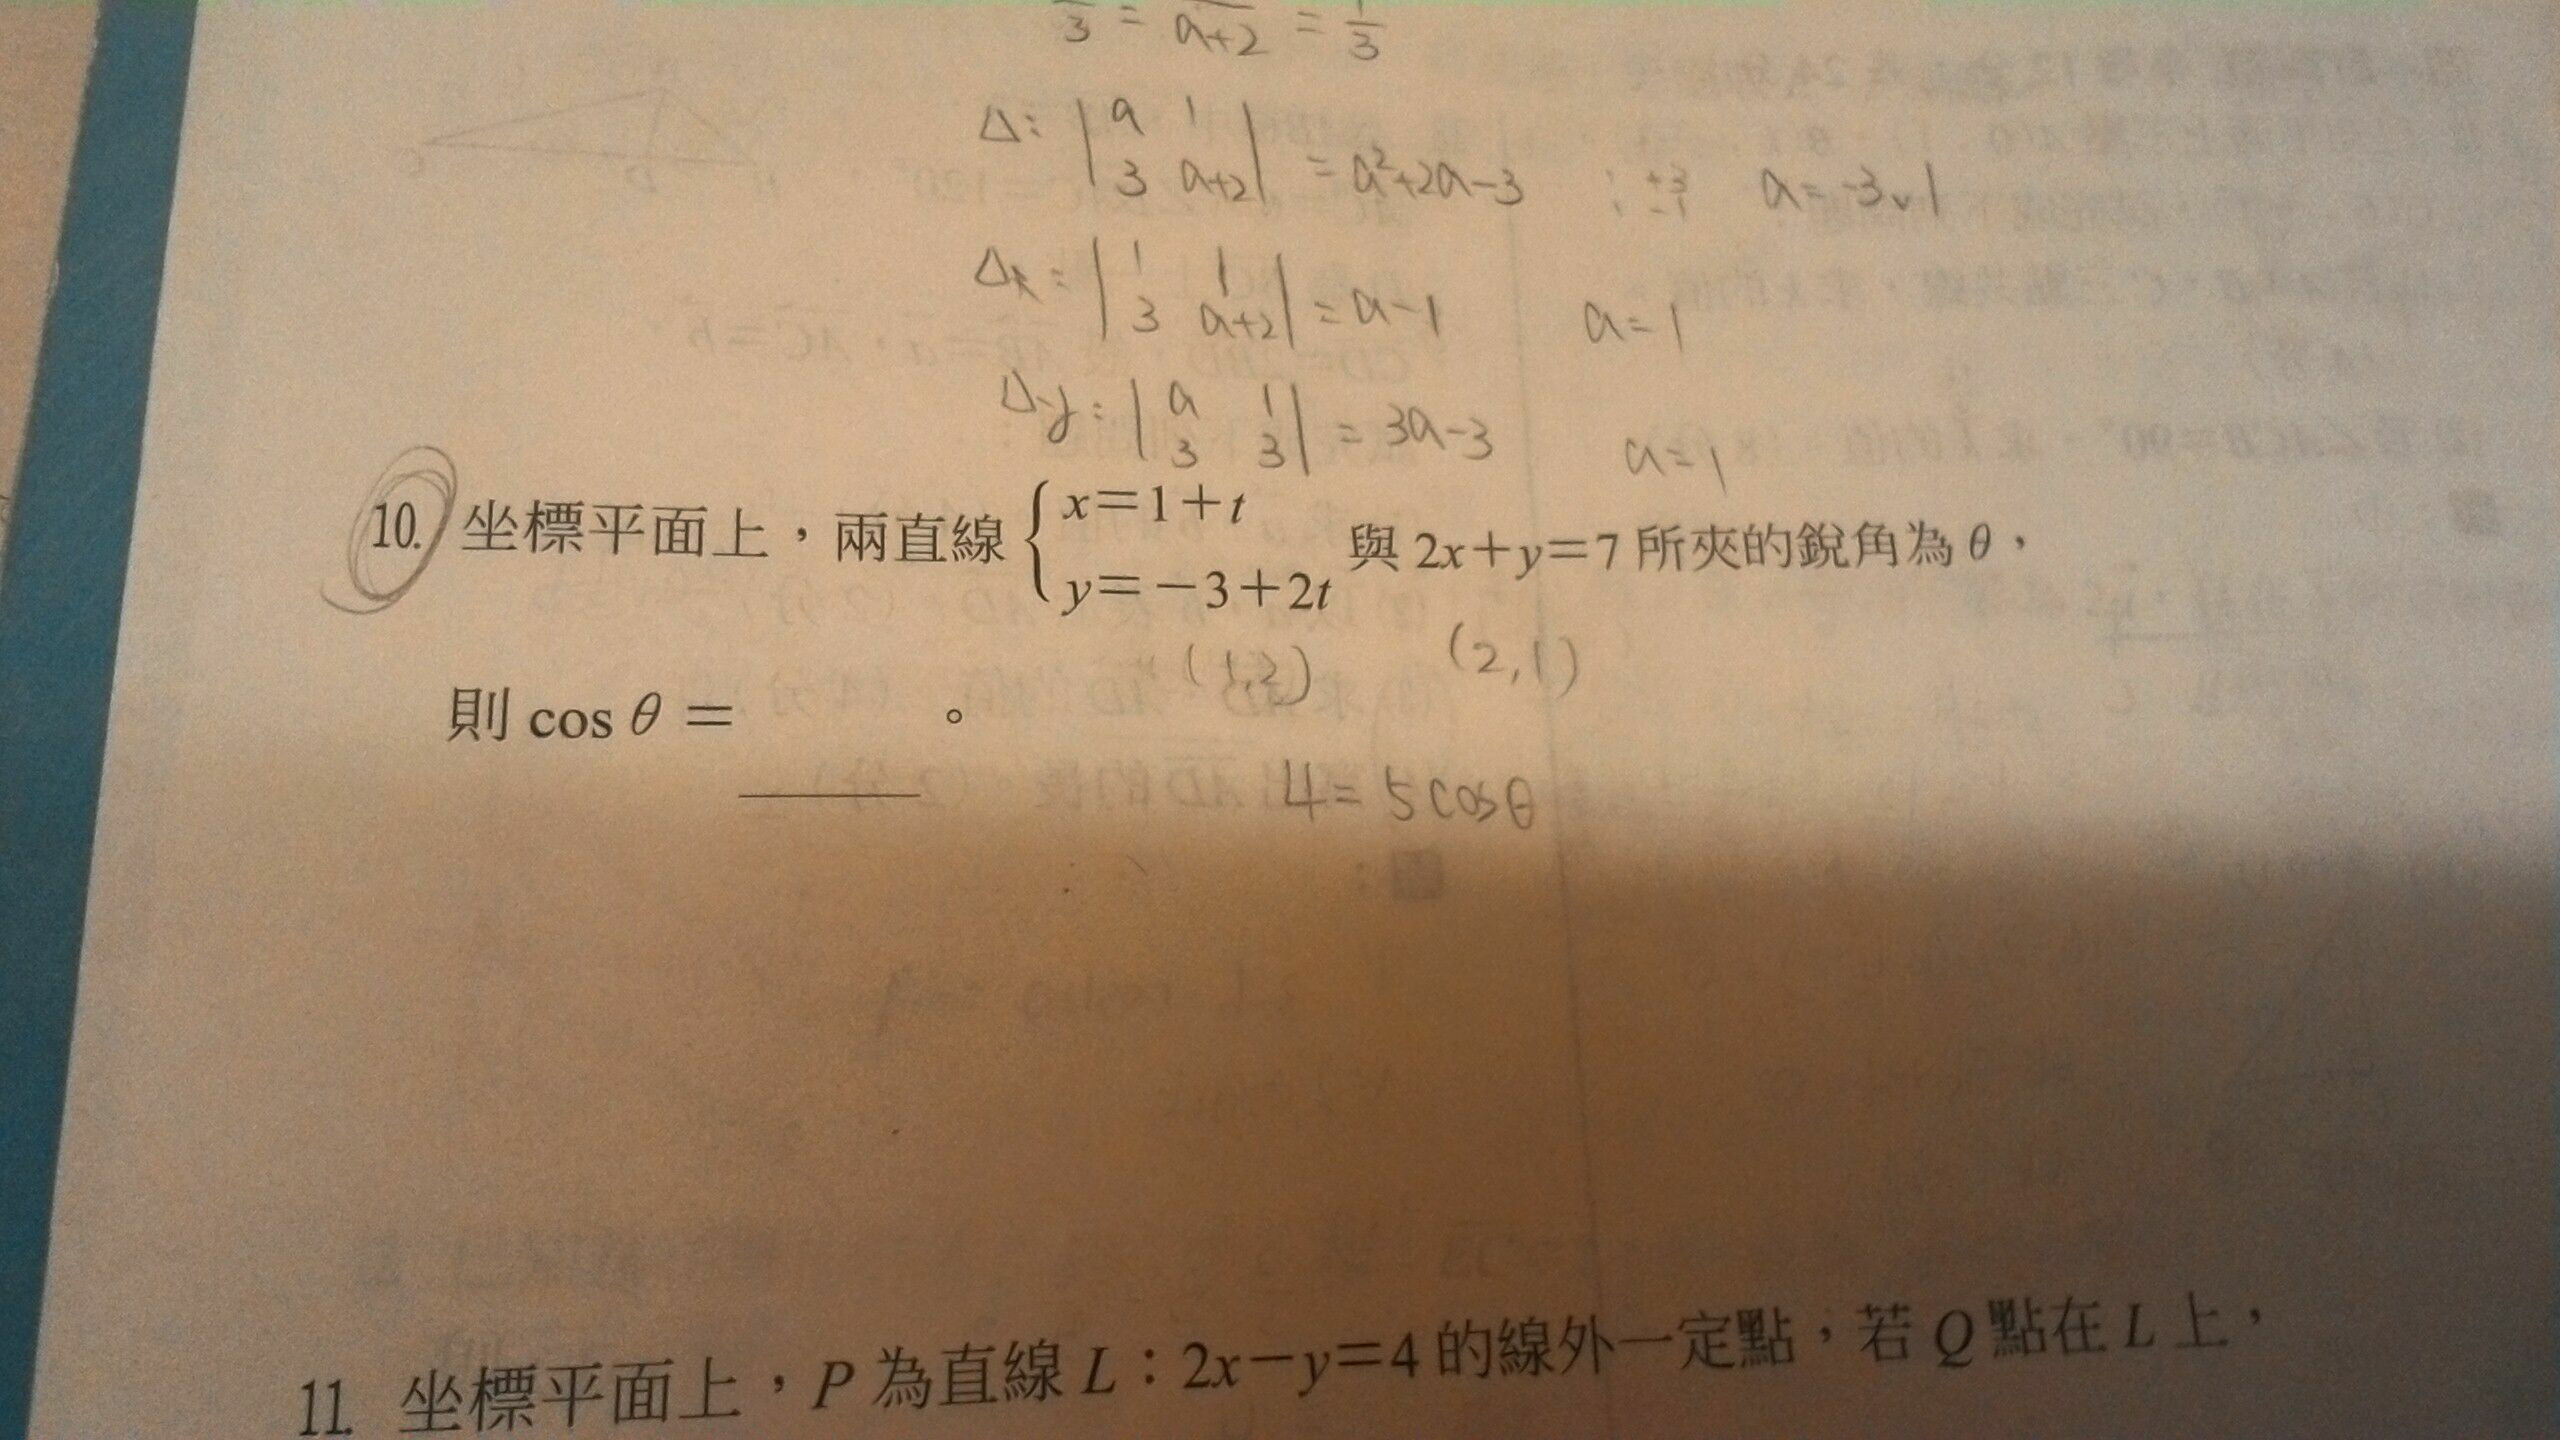 3 = a+2 = 1/3
Δ: | a 1 |
| 3 a+2 | = a²+2a-3 a=-3,1
Δx: | 1 1 |
| 3 a+2 | = a-1 a=1
Δy: | a 1 |
| 3 3 | = 3a-3 a=1
10. 坐標平面上，兩直線 { x=1+t
y=-3+2t 與 2x+y=7 所夾的銳角為 θ，
(1,2) (2,1)
則 cos θ = ＿＿＿。
4 = 5 cosθ
11. 坐標平面上，P 為直線 L：2x-y=4 的線外一定點，若 Q 點在 L 上，